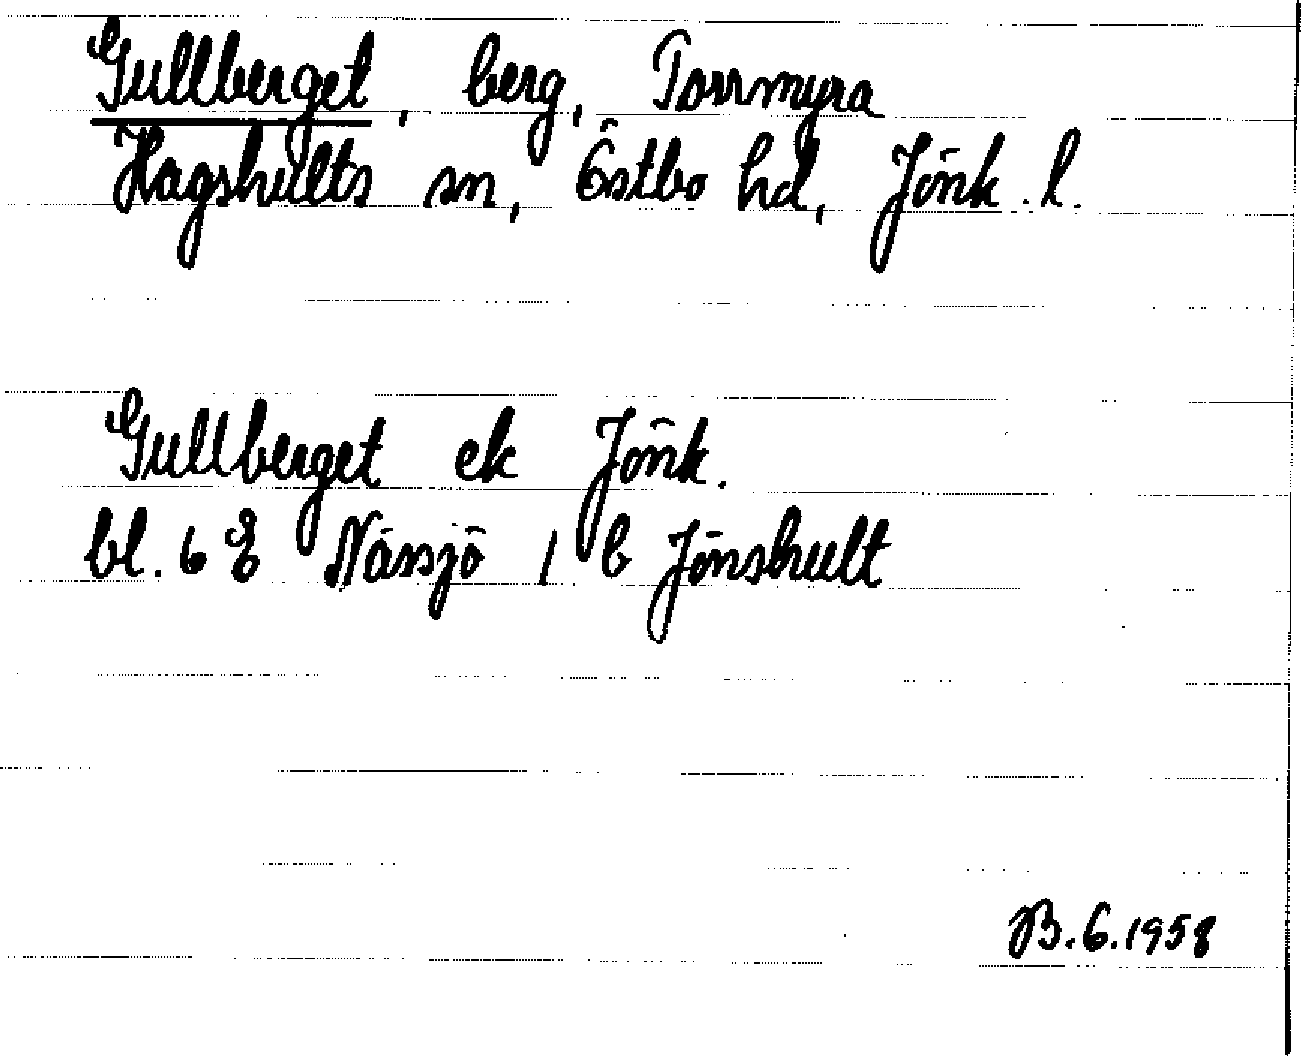 Gullberget, berg, Torrmyra
Hagshults sn, Östbo hd, Jönk. l.
Gullberget ek Jönk.
bl. 6 E Nässjö 1 b Jönshult
B. 6. 1958